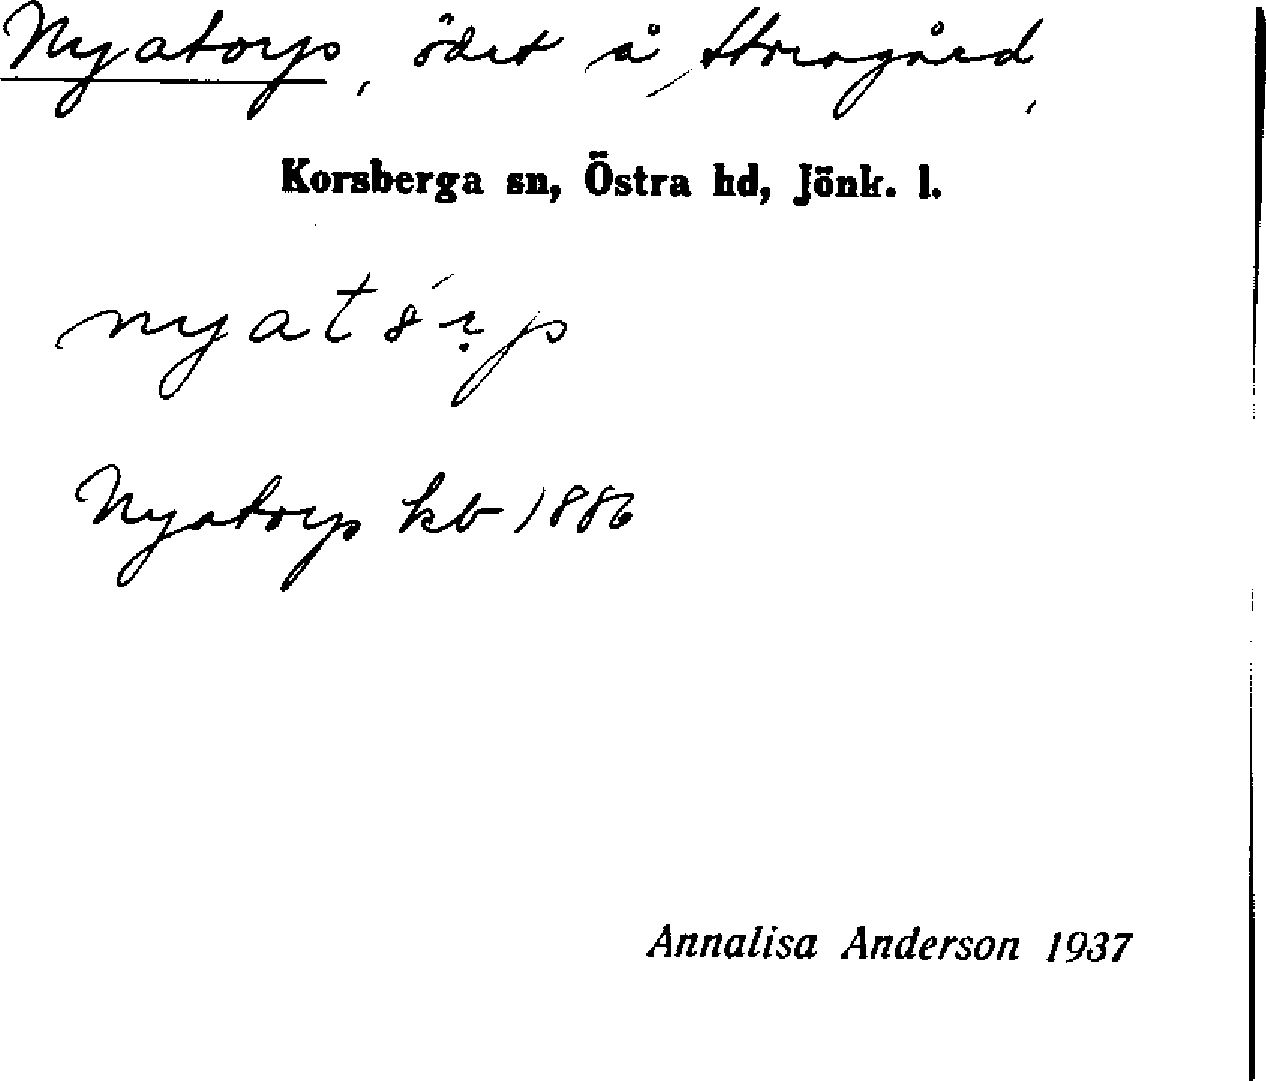 Nyatorp, ödet å Storagård,
Korsberga sn, Östra hd, Jönk. l.
Nyatorp kb 1886
Annalisa Anderson 1937